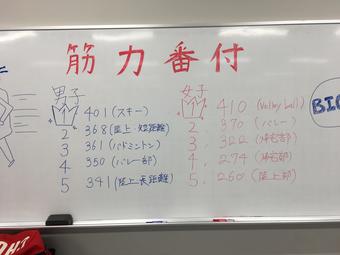 筋力番付
男子
1 401(スキー)
2 368(陸上・短距離)
3 361(バドミントン)
4 350(バレー部)
5 341(陸上・長距離)
女子
1 410(Volley ball)
2. 370(バレー)
3. 322(帰宅部)
4. 274(帰宅部)
5. 260(陸上部)
BIG